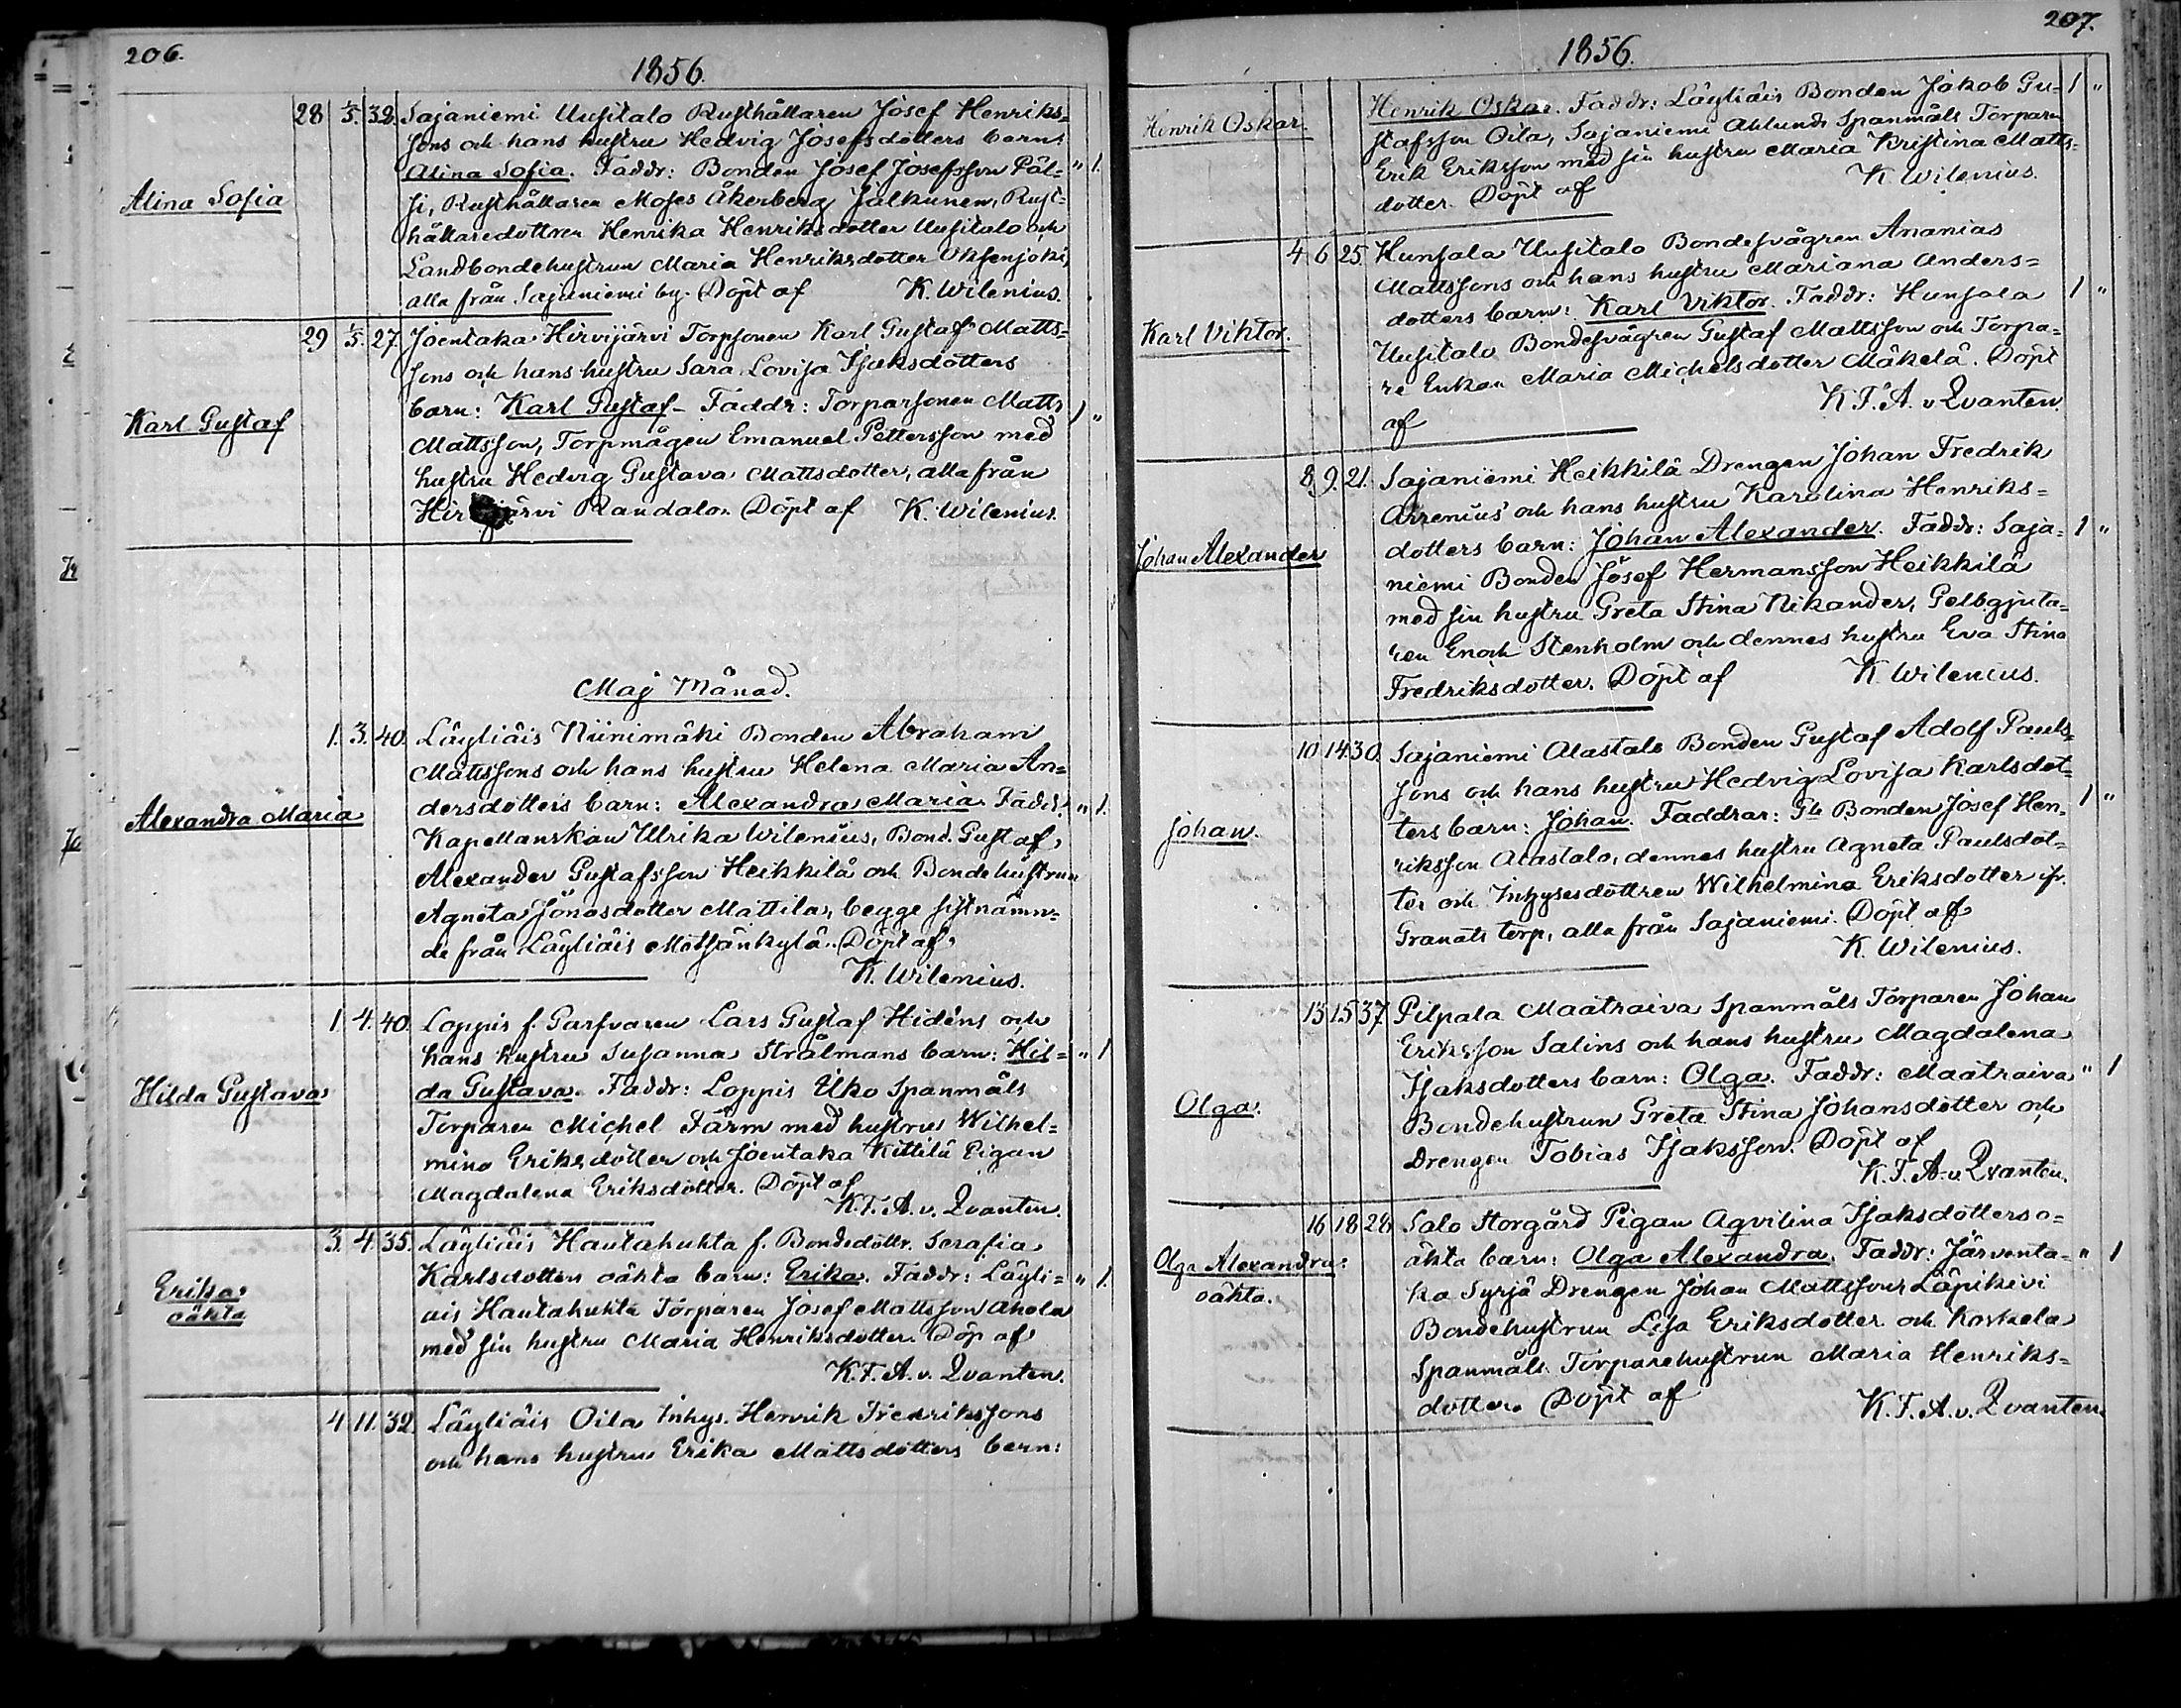 206.
1856.
Alina Sofia
28 1/5. 38. Sajaniemi Uusitalo Rusthållaren Josef Henriks=
sons och hans hustru Hedvig Josefsdotters barn:
Alina Sofia. Faddr: Bonden Josef Josefsson Päl= " 1.
si, Rusthållaren Moses Åkerberg Jälkunen, Rust=
hållaredottren Henrika Henriksdotter Uusitalo och
Landbondehustrun Maria Henriksdotter Uksenjoki,
alla från Sajaniemi by. Döpt af K. Wilenius.
Karl Gustaf
29 1/5. 27. Joentaka Hirvijärvi Torpsonen Karl Gustaf Matts=
sons och hans hustru Sara Lovisa Isaksdotters
barn: Karl Gustaf - Faddr: Torparsonen Matts 1 "
Mattsson, Torpmågen Emanuel Pettersson med
hustru Hedvig Gustava Mattsdotter, alla från
Hirvijärvi Randalo. Döpt af K. Wilenius.
Maj Månad.
Alexandra Maria
1. 3. 40. Läyliäis Niinimäki Bonden Abraham
Mattssons och hans hustru Helena Maria An=
dersdotters barn: Alexandra Maria. Faddr: " 1.
Kapellanskan Ulrika Wilenius, Bond. Gustaf
Alexander Gustafsson Heikkilä och Bondehustrun
Agneta Jonasdotter Mattila, begge sistnämn=
de från Läyliäis Metsänkylä. Döpt af
K. Wilenius.
Hilda Gustava
1 4. 40. Loppis f. Garfvaren Lars Gustaf Hidéns och
hans hustru Susanna Strålmans barn: Hil= " 1
da Gustava. Faddr: Loppis Uko Spanmåls
Torparen Michel Färm med hustru Wilhel=
mina Eriksdotter och Joentaka Kittilä Pigan
Magdalena Eriksdotter. Döpt af
K.F.A. v. Qvanten.
Erika
oäkta
3. 4. 35. Läyliäis Hautakukta f. Bondedottr. Serafia
Karlsdotters oäkta barn: Erika. Faddr: Läyli= " 1.
äis Hautakukta Torparen Josef Mattsson Ahola
med sin hustru Maria Henriksdotter. Döp af
K.F.A. v. Qvanten.
4 11. 32. Läyliäis Oila Inhys. Henrik Fredrikssons
och hans hustru Erika Mattsdotters barn:
207.
1856.
Henrik Oskar
Henrik Oskar. Faddr: Läyliäis Bonden Jakob Gu= 1 "
stafsson Oila, Sajaniemi Ahlunds Spanmåls Torparen
Erik Eriksson med sin hustru Maria Kristina Matts=
dotter. Döpt af K. Wilenius.
Karl Viktor.
4 6 25. Hunsala Uusitalo Bondesvågren Ananias
Mattssons och hans hustru Mariana Anders=
dotters barn: Karl Viktor. Faddr: Hunsala 1 "
Uusitalo Bondesvågren Gustaf Mattsson och Torpa=
re Enkan Maria Michelsdotter Mäkelä. Döpt
af K.F.A. v Qvanten.
Johan Alexander
8. 9. 21. Sajaniemi Heikkilä Drengen Johan Fredrik
Arrenius och hans hustru Karolina Henriks=
dotters barn: Johan Alexander. Faddr: Saja= 1 "
niemi Bonden Josef Hermansson Heikkilä
med sin hustru Greta Stina Nikander, Gelbgjuta=
ren Enoch Stenholm och dennes hustru Eva Stina
Fredriksdotter. Döpt af K. Wilenius.
Johan.
10 14 30. Sajaniemi Alastalo Bonden Gustaf Adolf Pauls=
sons och hans hustru Hedvig Lovisa Karlsdot=
ters barn: Johan. Faddrar: Gle Bonden Josef Hen= 1 "
riksson Alastalo, dennes hustru Agneta Paulsdot=
ter och Inhysesdottren Wilhelmina Eriksdotter ifr.
Granats torp, alla från Sajaniemi. Döpt af
K. Wilenius.
Olga.
13 15 37 Pilpala Maatraiva Spanmåls Torparen Johan
Eriksson Salins och hans hustru Magdalena
Isaksdotters barn: Olga. Faddr: Maatraiva " 1
Bondehustrun Greta Stina Johansdotter och
Drengen Tobias Isaksson. Döpt af
K.F.A. v. Qvanten.
Olga Alexandra
oäkta.
16 18 28 Salo Storgård Pigan Aqvilina Isaksdotters o=
äkta barn: Olga Alexandra. Faddr: Järventa= " 1
ka Syrjä Drengen Johan Mattsson, Läpikivi
Bondehustrun Lisa Eriksdotter och Korkela
Spanmåls Torparehustrun Maria Henriks=
dotter. Döpt af K.F.A. v. Qvanten.